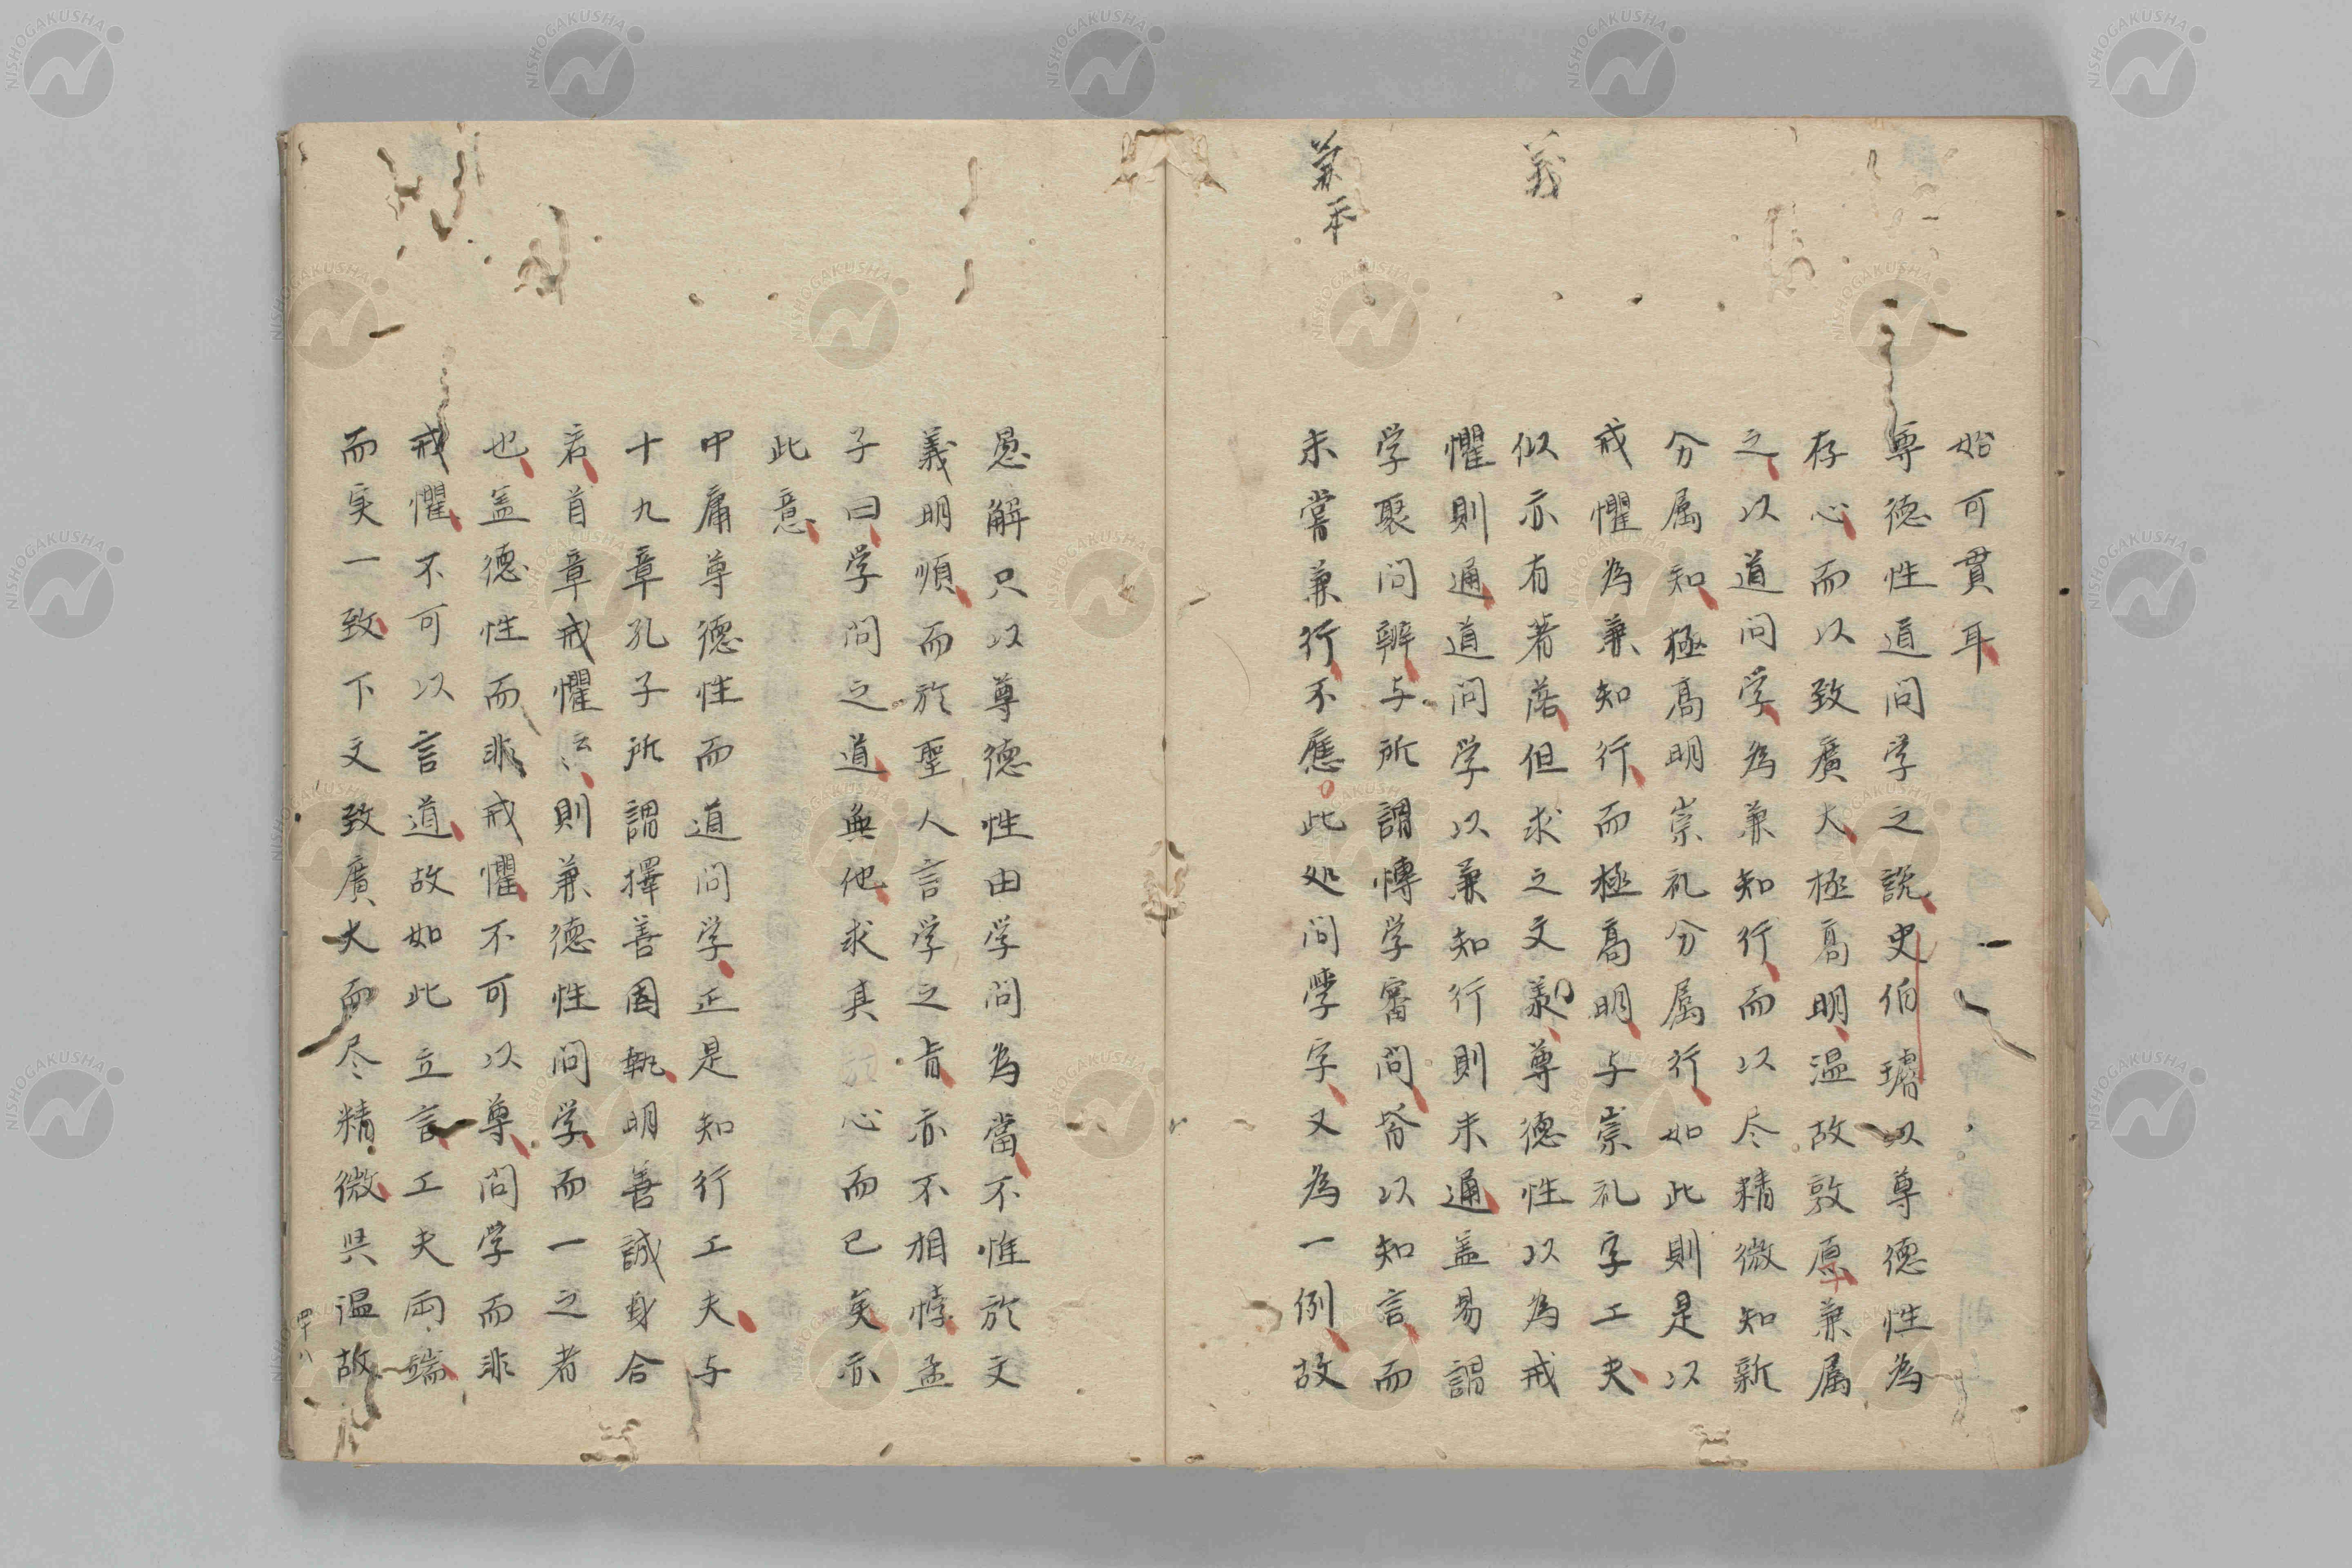 始可貫耳
尊德性道問学之説史伯璿以尊德性為
存心而以致廣大極高明温故敦厚兼属
之以道問学為兼知行而以尽精微知新
分属知極高明崇礼分属行如此則是以
戒懼為兼知行而極高明与崇礼字工夫
似亦有著落但求之文義尊德性以為戒
懼則通道問学以兼知行則未通盖易謂
学聚問辨与所謂慱学審問皆以知言而
未嘗兼行不應此処問學字又為一例故
義
兼本
愚解只以尊德性由学問為當不惟於文
義明順而於聖人言学之旨亦不相悖孟
子曰学問之道無他求其心而已矣亦
此意
中庸尊德性而道問学正是知行工夫与
十九章孔子所謂擇善固執明善誠身合
若首章戒懼云云則兼德性問学而一之者
也盖德性而非戒懼不可以尊問学而非
戒懼不可以言道故如此立言工夫両端
而実一致下文致廣大而尽精微与温故
四十八
NISHOGAKUSHA